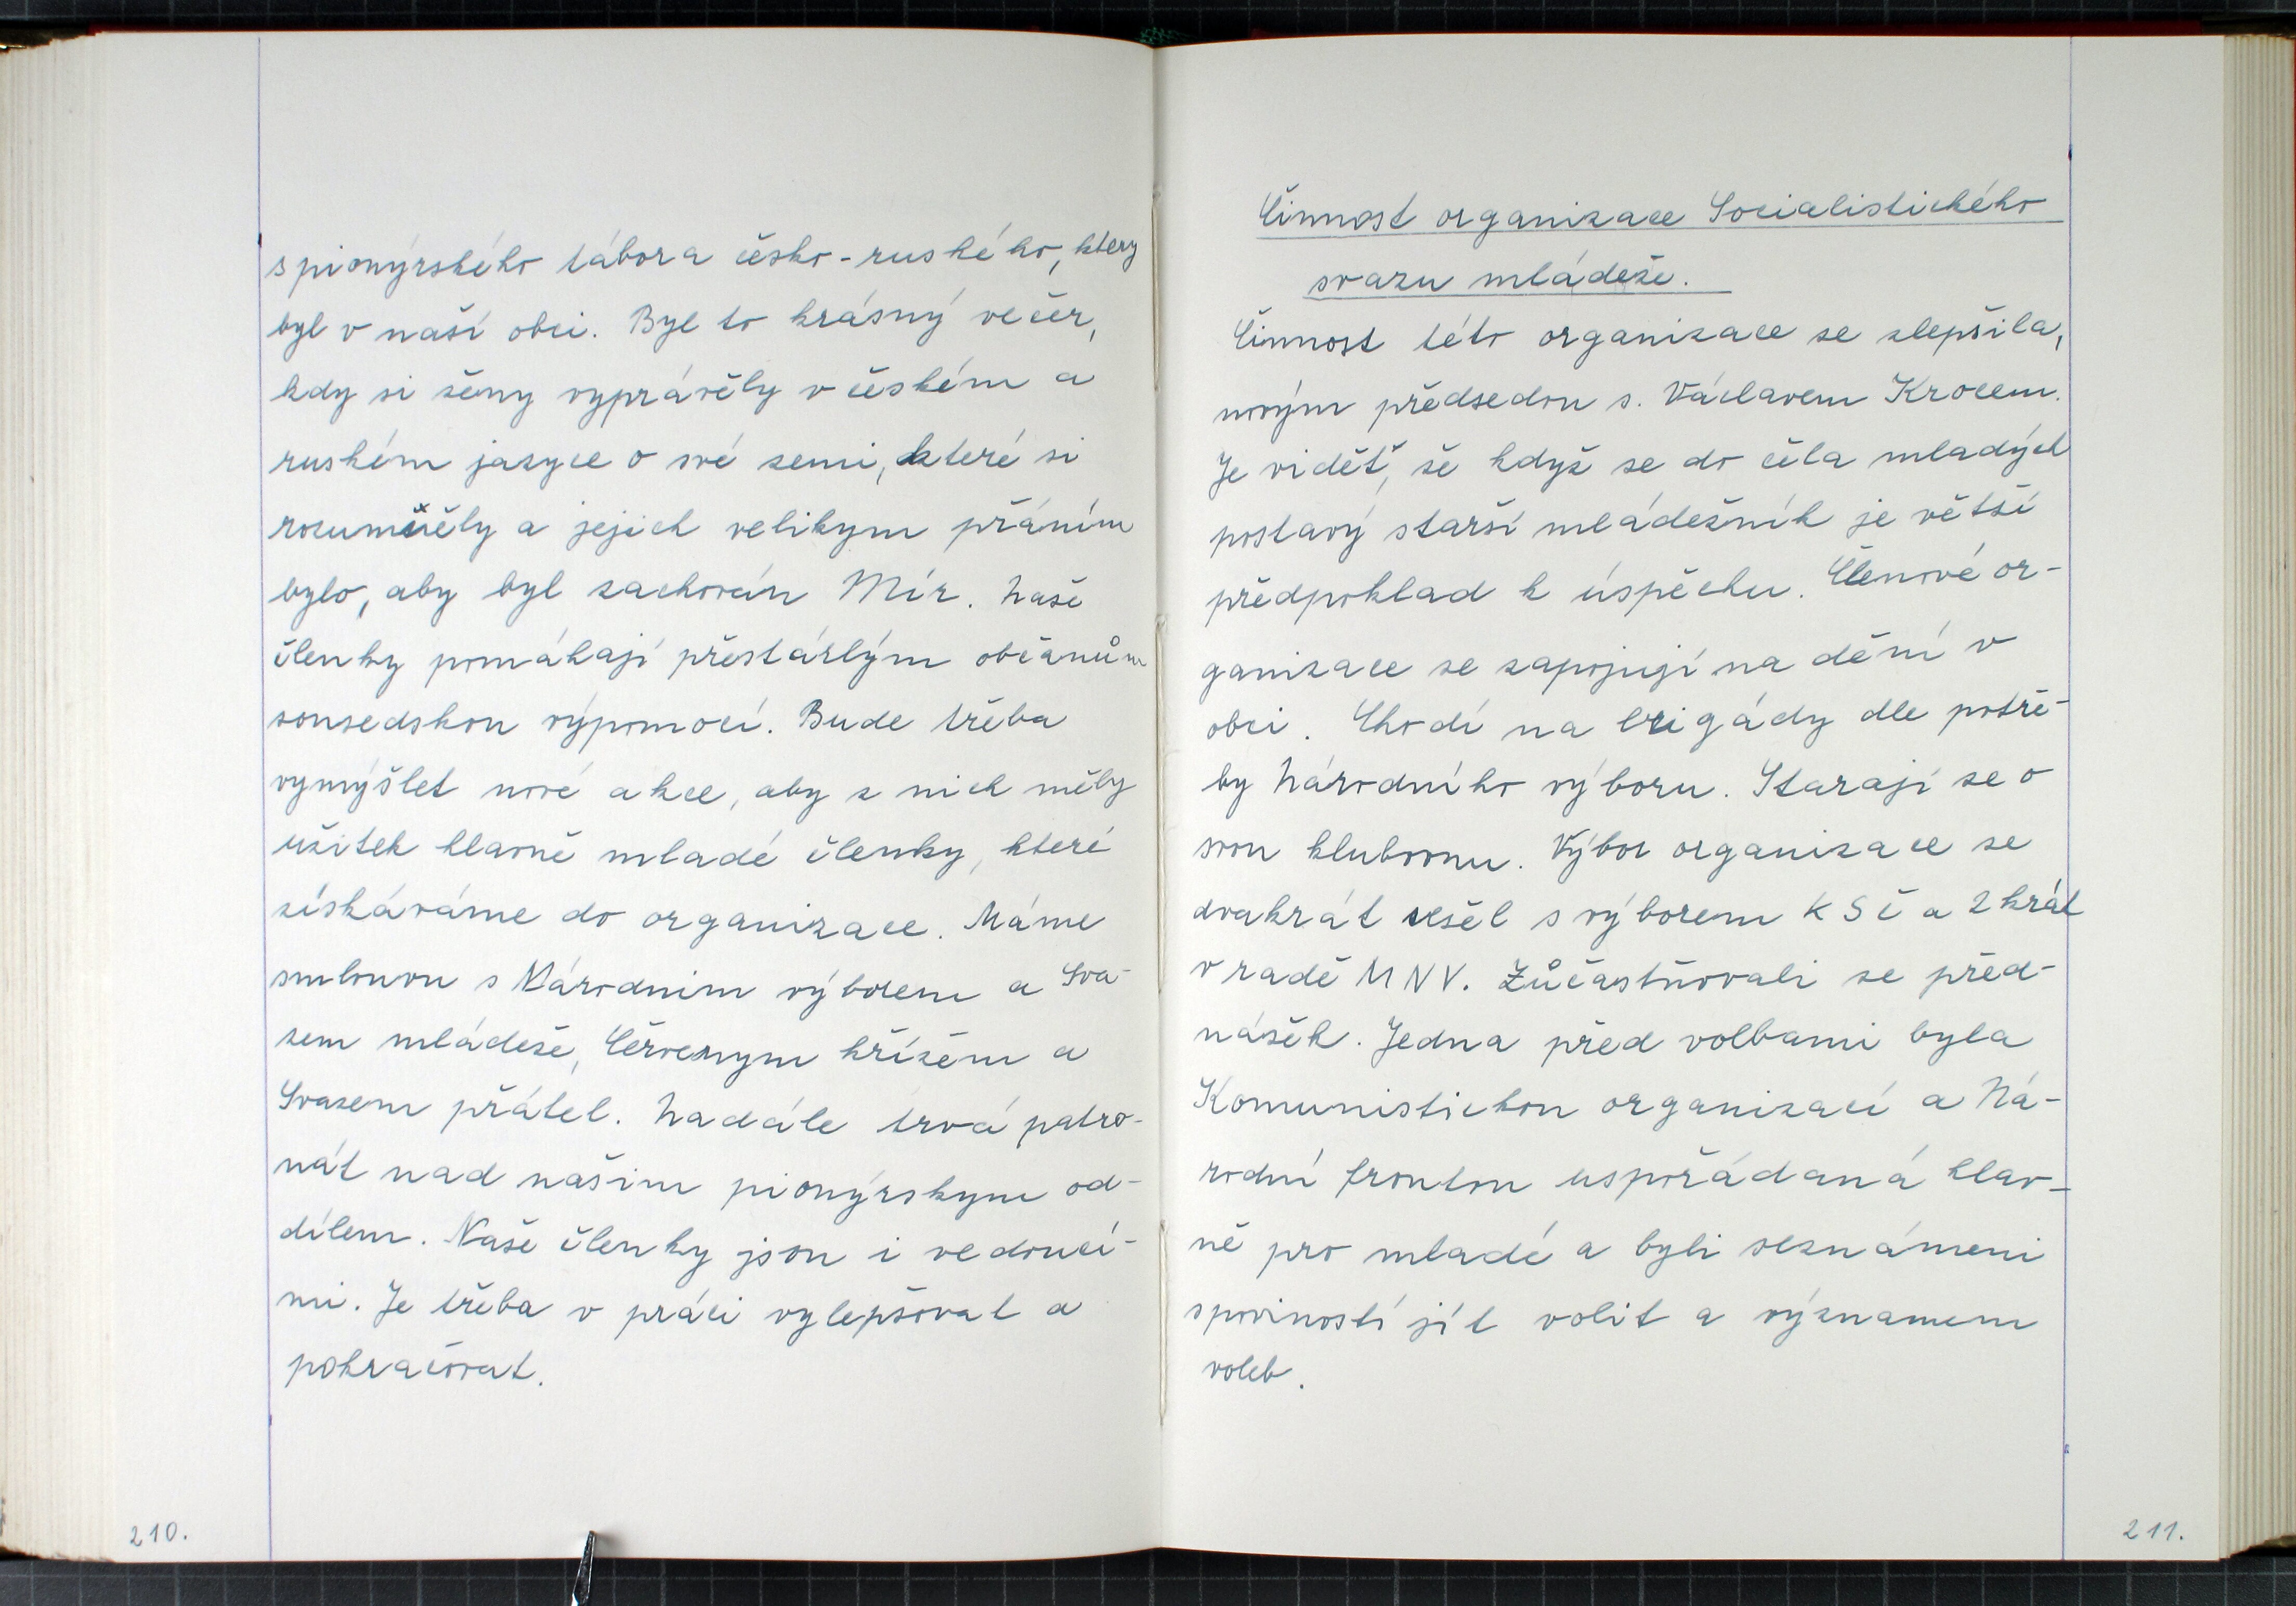 s pionýrského tábora česko-ruského, ktery
byl v naší obci. Byl to krásný večer,
kdy si ženy vyprávěly v českém a
ruském jazyce o své zemi, které si
rozuměly a jejich velikym přáním
bylo, aby byl zachován Mír. Naše
členky pomáhají přestárlým občanům
sousedskou výpomocí. Bude třeba
vymýšlet nové akce, aby z nich měly
užitek hlavně mladé členky, které
získáváme do organizace. Máme
smlouvu s Národnim výborem a Sva-
zem mládeže, Červenym křížem a
Svazem přátel. Nadále trvá patro-
nát nad našim pionýrskym od-
dílem. Naše členky jsou i vedoucí-
mi. Je třeba v práci vylepšovat a
pokračovat.
210.
Činnost organizace Socialistického
svazu mládeže.
Činnost této organizace se zlepšila,
novým předsedou s. Václavem Krocem.
Je vidět, že když se do čela mladých
postavý starší mládežník je větší
předpoklad k úspěchu. Členové or-
ganizace se zapojují na dění v
obci. Chodí na brigády dle potře-
by Národního výboru. Starají se o
svou klubovnu. Výbor organizace se
dvakrát sešel s výborem KSČ a 2krát
v radě MNV. Zůčastňovali se před-
nášek. Jedna před volbami byla
Komunistickou organizací a Ná-
rodní frontou uspořádaná hlav-
ně pro mladé a byli seznámeni
s povinností jít volit a významem
voleb.
211.